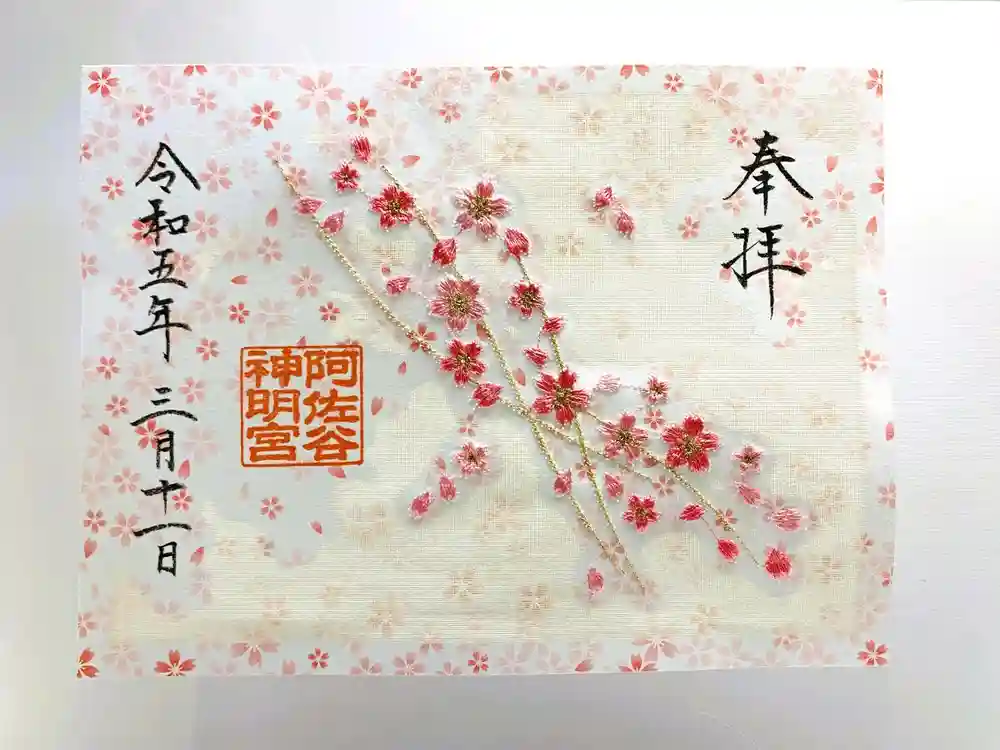 奉拝
阿佐谷
神明宮
令和五年 三月十一日